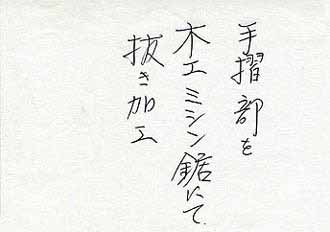 手摺部を
木工ミシン鋸にて
抜き加工